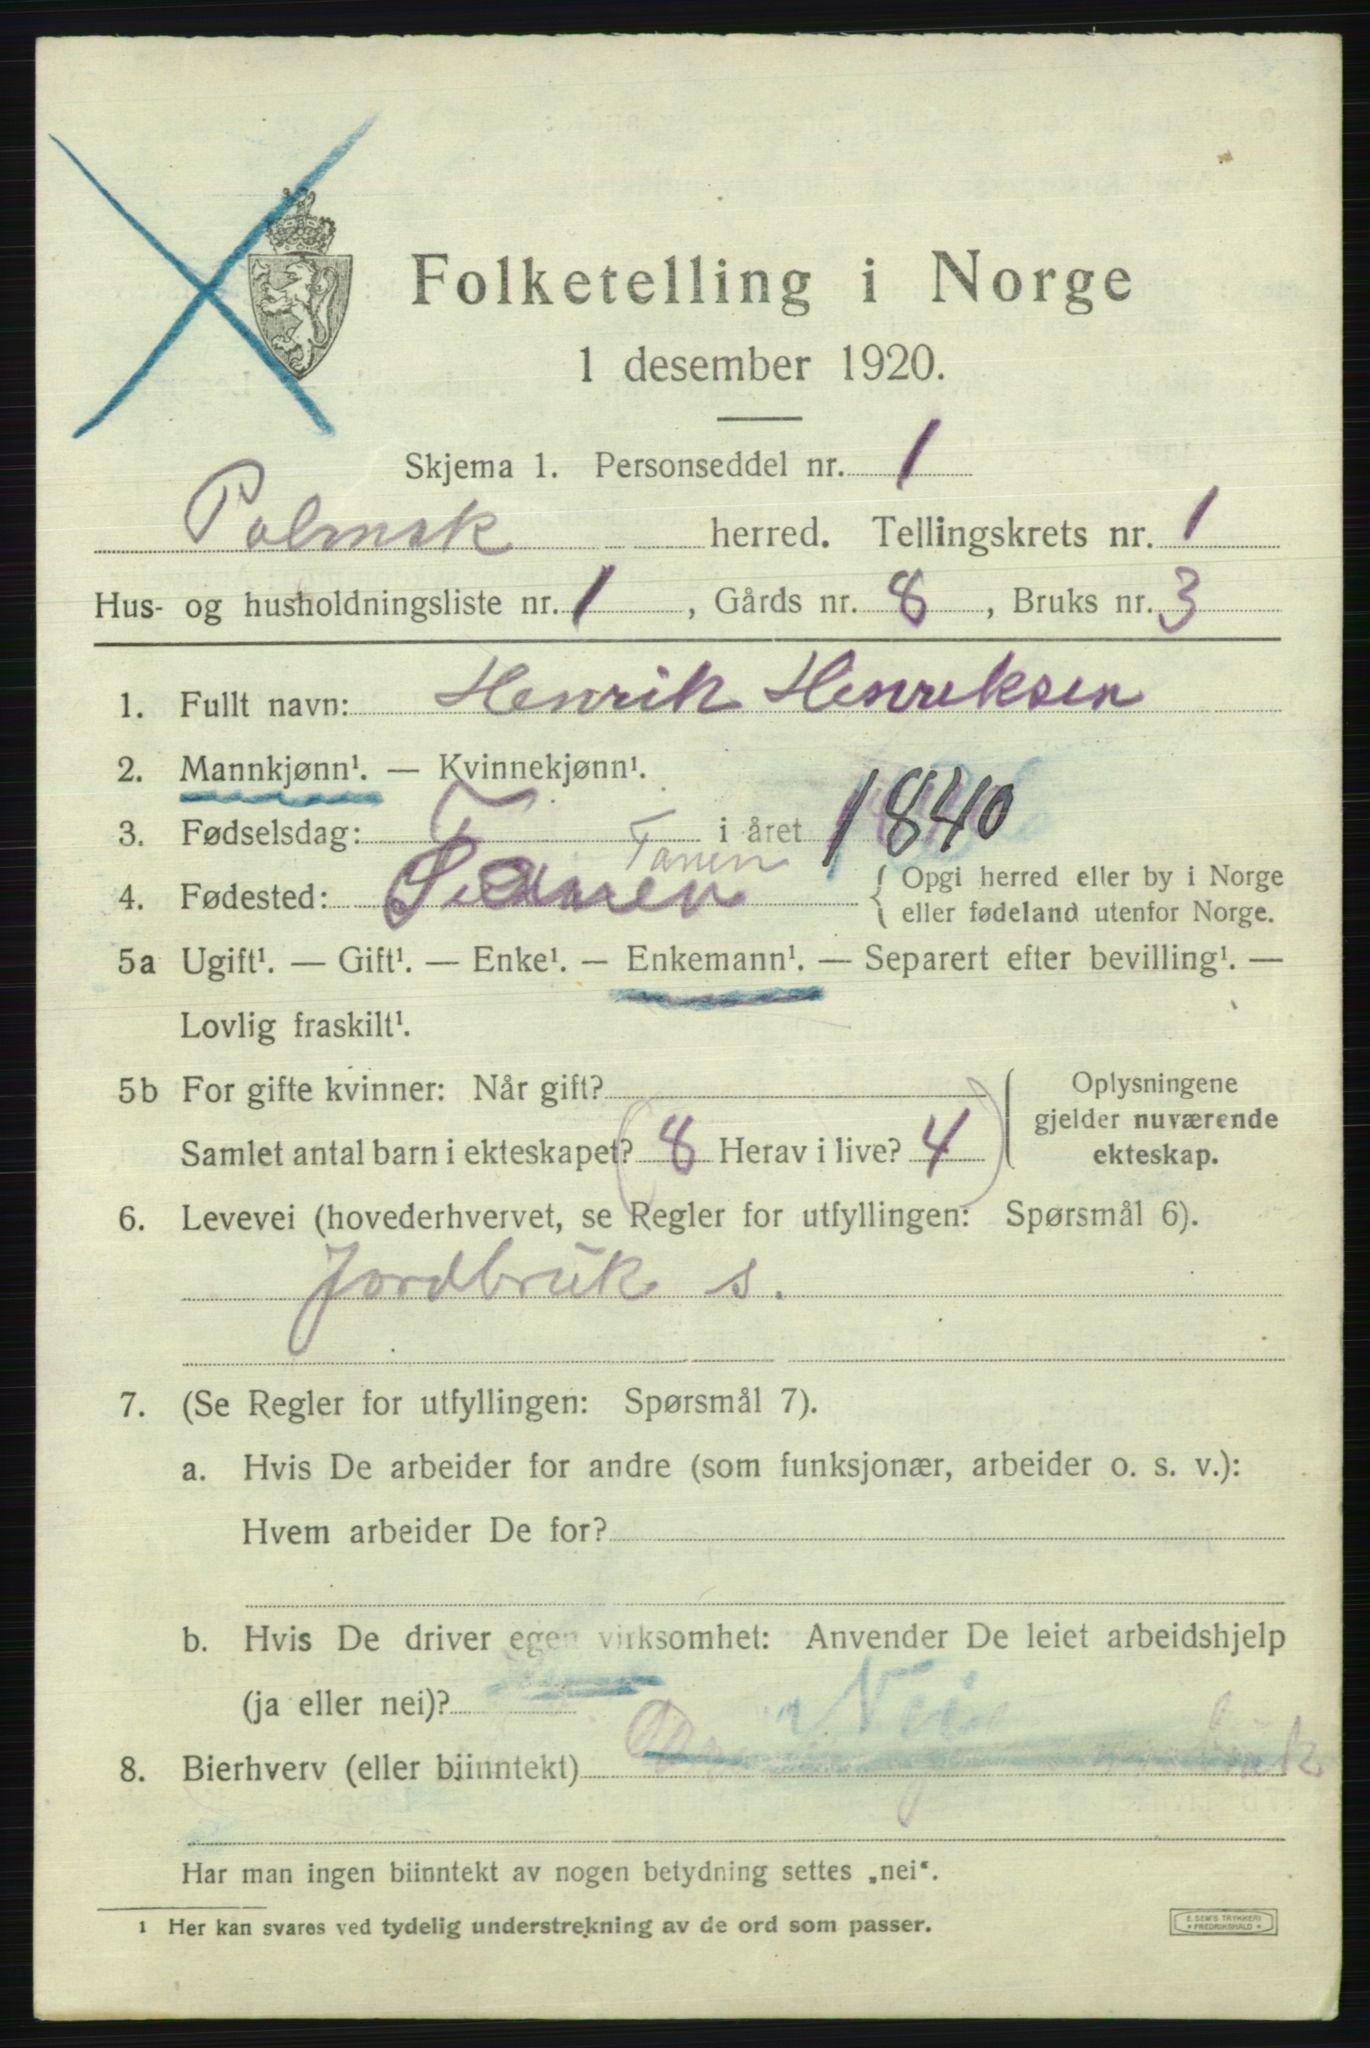 Folketelling i Norge
1 desember 1920.
Skjema 1. Personseddel nr. 1
Polmak herred. Tellingskrets nr. 1
Hus- og husholdningsliste nr. 1, Gårds nr. 8, Bruks nr. 3
1. Fullt navn: Henrik Henriksen
2. Mannkjønn¹. — Kvinnekjønn¹.
3. Fødselsdag: i året 1840
Tanen
4. Fødested: { Opgi herred eller by i Norge
eller fødeland utenfor Norge.
5a Ugift¹. — Gift¹. — Enke¹. — Enkemann¹. — Separert efter bevilling¹. —
Lovlig fraskilt¹.
5b For gifte kvinner: Når gift? { Oplysningene
gjelder nuværende
Samlet antal barn i ekteskapet? (8 Herav i live? 4)
ekteskap.
6. Levevei (hovederhvervet, se Regler for utfyllingen: Spørsmål 6).
Jordbruk s.
7. (Se Regler for utfyllingen: Spørsmål 7).
a. Hvis De arbeider for andre (som funksjonær, arbeider o. s. v.):
Hvem arbeider De for?
b. Hvis De driver egen virksomhet: Anvender De leiet arbeidshjelp
(ja eller nei)? Nei
8. Bierhverv (eller biinntekt)
Har man ingen biinntekt av nogen betydning settes „nei“.
¹ Her kan svares ved tydelig understrekning av de ord som passer.
E. SEM'S TRYKKERI
* FREDRIKSHALD *